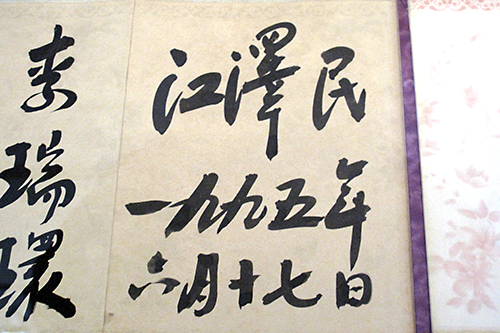 江澤民
一九九五年
六月十七日
李瑞環